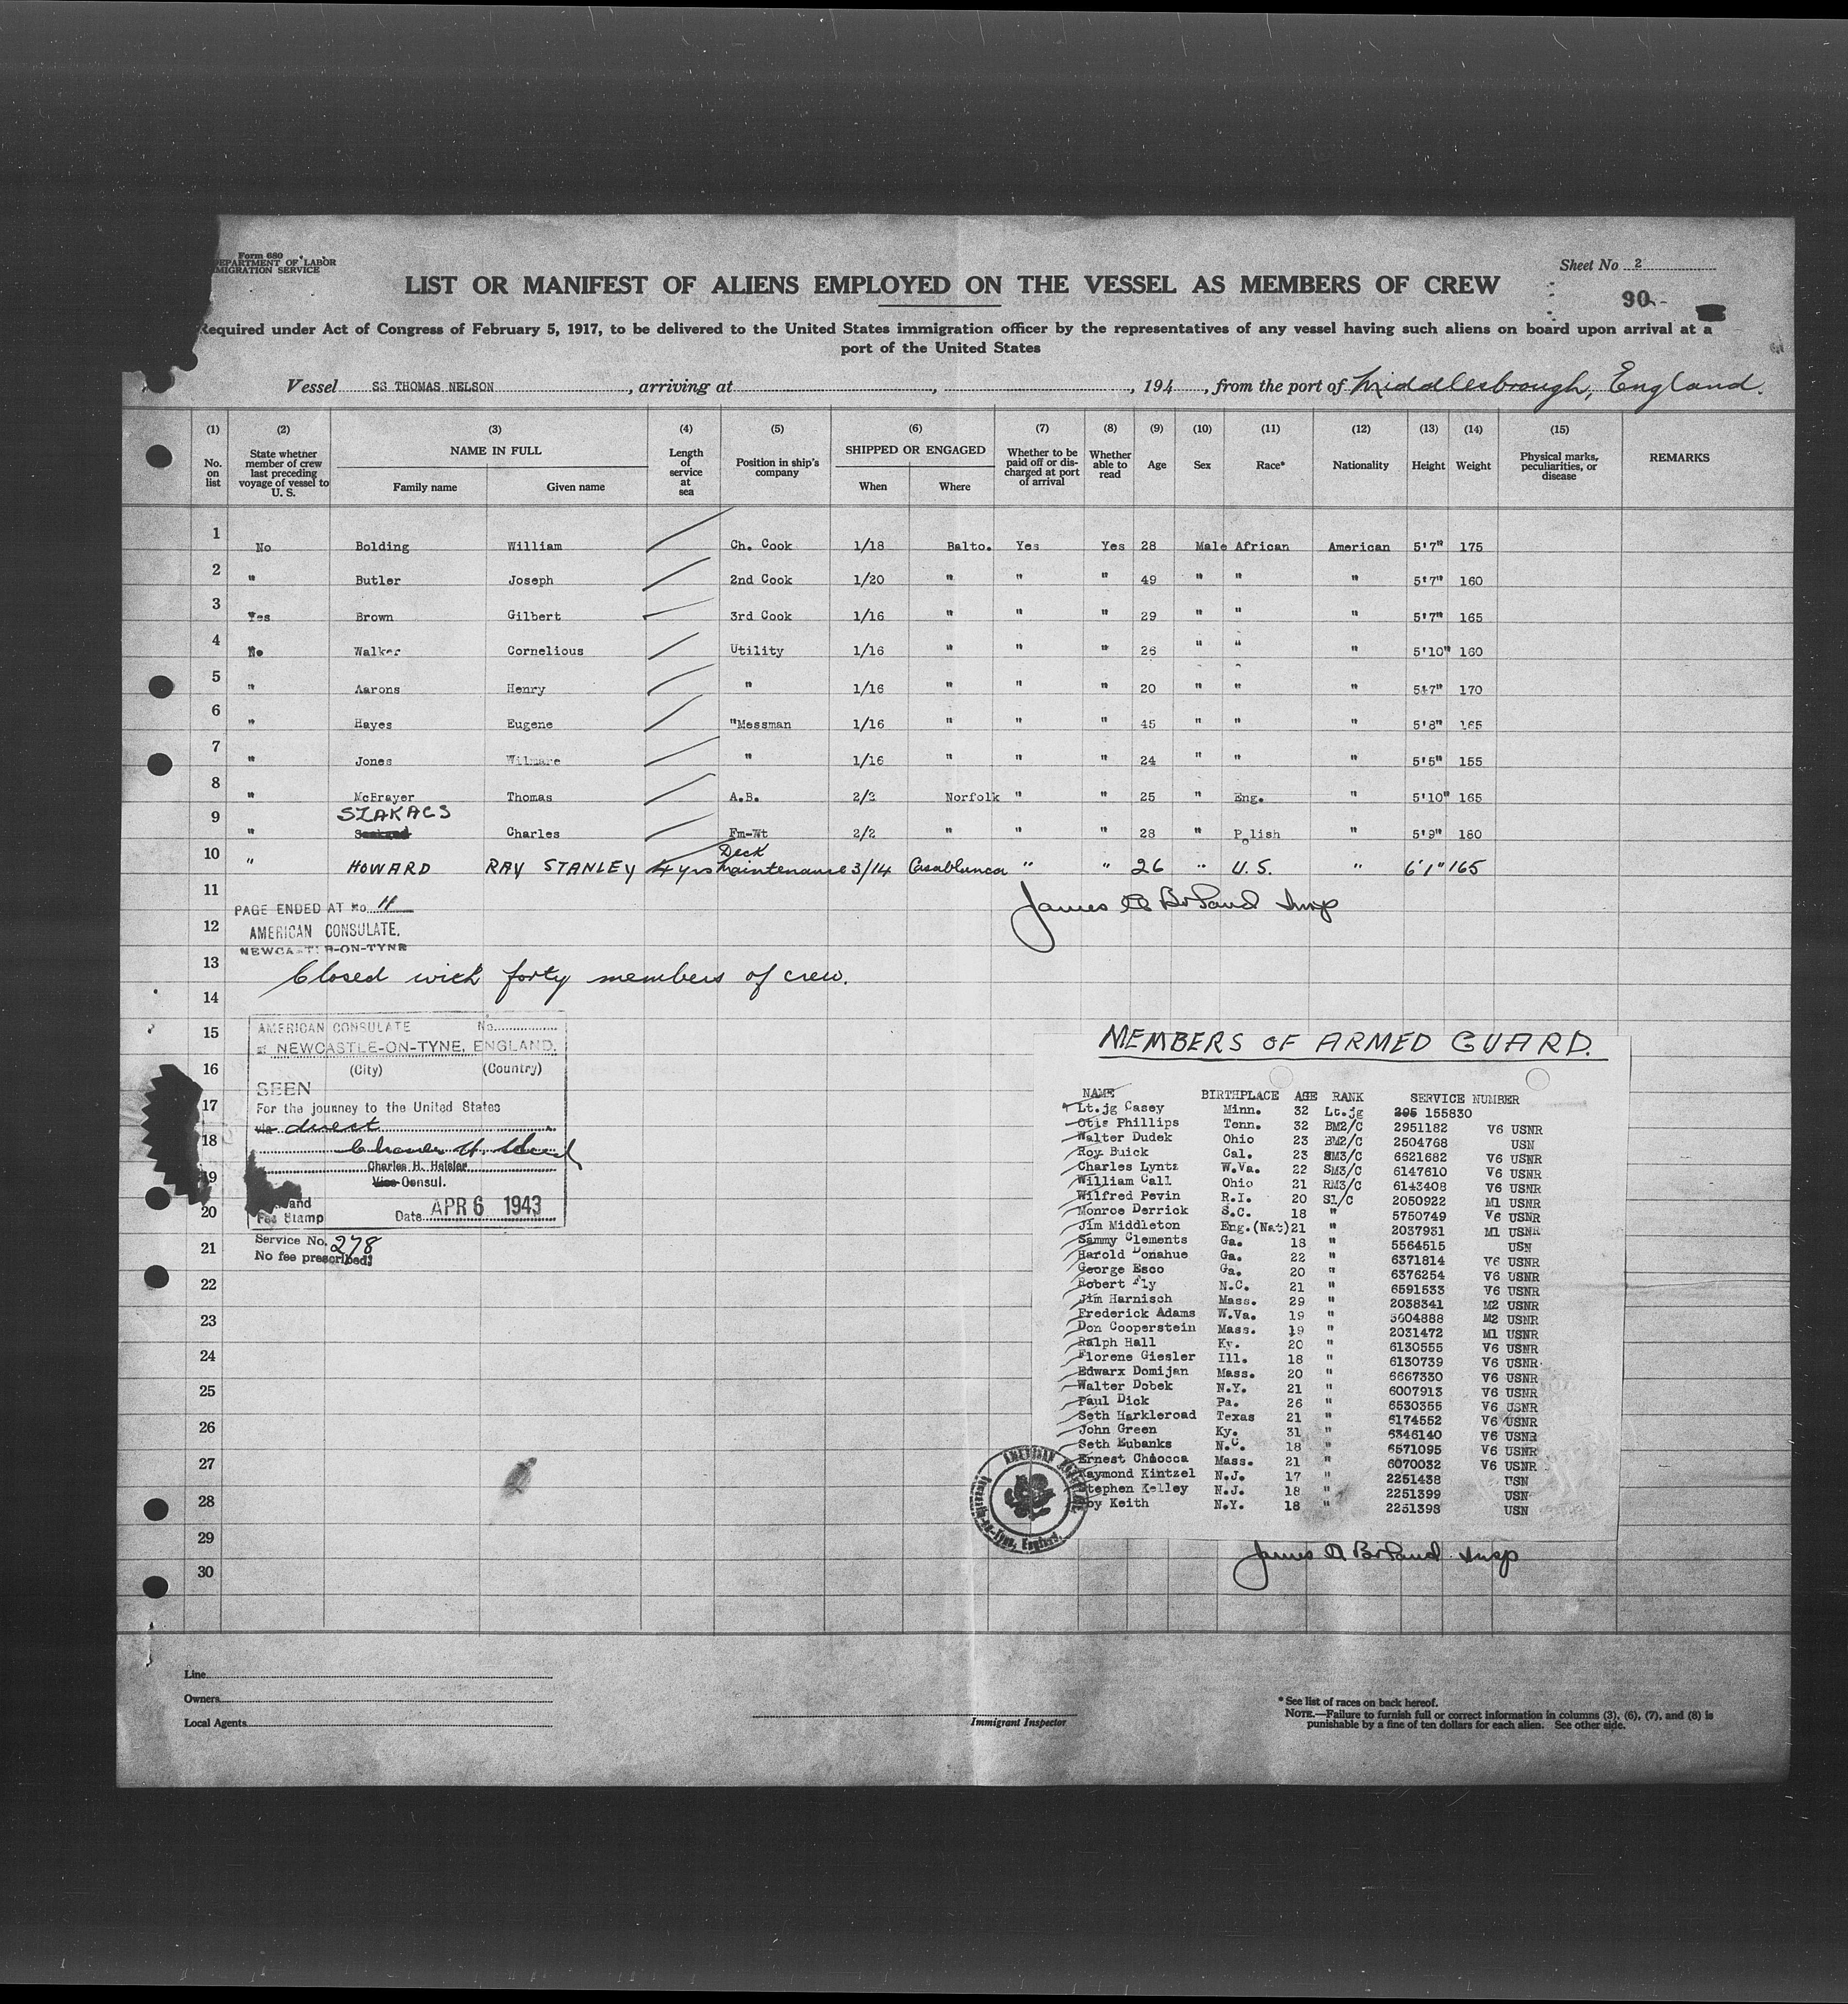 Form 680
DEPARTMENT OF LABOR
IMMIGRATION SERVICE
Sheet No 2
90
LIST OR MANIFEST OF ALIENS EMPLOYED ON THE VESSEL AS MEMBERS OF CREW
Required under Act of Congress of February 5, 1917, to be delivered to the United States immigration officer by the representatives of any vessel having such aliens on board upon arrival at a
port of the United States
Vessel SS THOMAS NELSON, arriving at , , 194 , from the port of Middlesbrough, England.
(1) (2) (3) (4) (5) (6) (7) (8) (9) (10) (11) (12) (13) (14) (15)
No. on list State whether member of crew last preceding voyage of vessel to U. S. NAME IN FULL Family name Given name Length of service at sea Position in ship's company SHIPPED OR ENGAGED When Where Whether to be paid off or discharged at port of arrival Whether able to read Age Sex Race* Nationality Height Weight Physical marks, peculiarities, or disease REMARKS
1 No Bolding William Ch. Cook 1/18 Balto. Yes Yes 28 Male African American 5'7" 175
2 " Butler Joseph 2nd Cook 1/20 " " " 49 " " " 5'7" 160
3 Yes Brown Gilbert 3rd Cook 1/16 " " " 29 " " " 5'7" 165
4 No Walker Cornelious Utility 1/16 " " " 26 " " " 5'10" 160
5 " Aarons Henry " 1/16 " " " 20 " " " 5'7" 170
6 " Hayes Eugene "Messman 1/16 " " " 45 " " " 5'8" 165
7 " Jones Wilmare " 1/16 " " " 24 " " " 5'5" 155
8 " McBrayer Thomas A.B. 2/2 Norfolk " " 25 " Eng. " 5'10" 165
9 " SZAKACS Charles Fm-Wt 2/2 " " " 28 " Polish " 5'9" 180
10 " HOWARD RAY STANLEY 4 yrs Deck Maintenance 3/14 Casablanca " " 26 " U.S. " 6'1" 165
11
James A Borland Insp
PAGE ENDED AT No. 11
12
AMERICAN CONSULATE,
NEWCASTLE-ON-TYNE
13
Closed with forty members of crew.
14
15
16
17
18
19
20
21
22
23
24
25
26
27
28
29
30
AMERICAN CONSULATE No.
at NEWCASTLE-ON-TYNE, ENGLAND.
(City) (Country)
SEEN
For the journey to the United States
via direct
Charles H. Heisler
Vice Consul.
and
Fee Stamp Date APR 6 1943
Service No. 278
No fee prescribed:
MEMBERS OF ARMED GUARD.
NAME BIRTHPLACE AGE RANK SERVICE NUMBER
Lt.jg Casey Minn. 32 Lt.jg 295 155830
Otis Phillips Tenn. 32 BM2/C 2951182 V6 USNR
Walter Dudek Ohio 23 BM2/C 2504768 USN
Roy Buick Cal. 23 SM3/C 6621682 V6 USNR
Charles Lyntz W.Va. 22 SM3/C 6147610 V6 USNR
William Call Ohio 21 RM3/C 6143408 V6 USNR
Wilfred Pevin R.I. 20 S1/C 2050922 M1 USNR
Monroe Derrick S.C. 18 " 5750749 V6 USNR
Jim Middleton Eng.(Nat) 21 " 2037931 M1 USNR
Sammy Clements Ga. 18 " 5564515 USN
Harold Donahue Ga. 22 " 6371814 V6 USNR
George Esco Ga. 20 " 6376254 V6 USNR
Robert Fly N.C. 21 " 6591533 V6 USNR
Jim Harnisch Mass. 29 " 2038341 M2 USNR
Frederick Adams W.Va. 19 " 3604888 M2 USNR
Don Cooperstein Mass. 19 " 2031472 M1 USNR
Ralph Hall Ky. 20 " 6130555 V6 USNR
Florene Giesler Ill. 18 " 6130739 V6 USNR
Edwarx Domijan Mass. 20 " 6667330 V6 USNR
Walter Dobek N.Y. 21 " 6007913 V6 USNR
Paul Dick Pa. 26 " 6530355 V6 USNR
Seth Harkleroad Texas 21 " 6174552 V6 USNR
John Green Ky. 31 " 6346140 V6 USNR
Seth Eubanks N.C. 18 " 6571095 V6 USNR
Ernest Chiocca Mass. 21 " 6070032 V6 USNR
Raymond Kintzel N.J. 17 " 2251438 USN
Stephen Kelley N.J. 18 " 2251399 USN
Roy Keith N.Y. 18 " 2251398 USN
Newcastle-on-Tyne, England.
James A Borland Insp
Line
Owners
Local Agents
Immigrant Inspector
* See list of races on back hereof.
NOTE.—Failure to furnish full or correct information in columns (3), (6), (7), and (8) is
punishable by a fine of ten dollars for each alien. See other side.